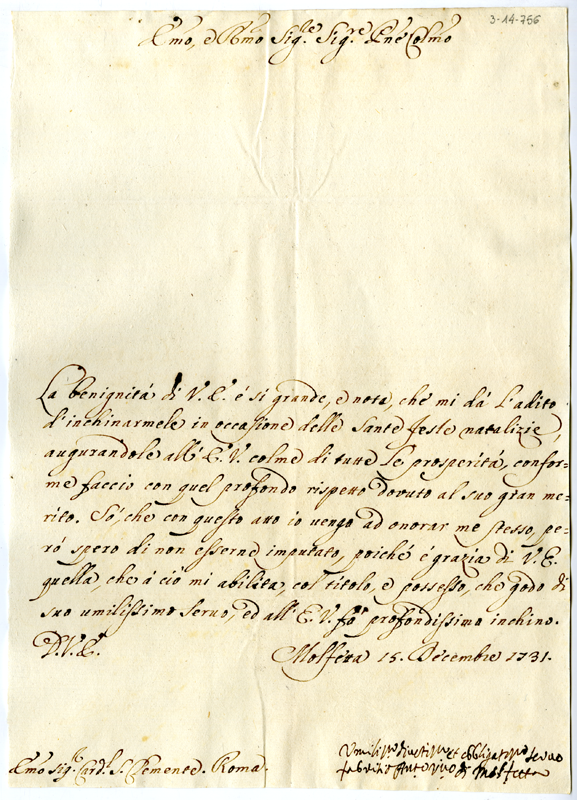 3-14-766
Emo, e Rmo Sig.re Sig.re Pñe Colmo
La benignitá di V. E. é si grande, e nota, che mi dá l'adito
d'inchinarmele in occasione delle Sante feste natalizie,
augurandole all' E. V. colme di tutte le prosperitá, confor-
me faccio con quel profondo rispetto dovuto al suo gran me-
rito. Só, che con questo atto io vengo ad onorar me stesso, pe-
ró spero di non esserne imputato, poiché é grazia di V. E.
quella, che á ció mi abilita, col titolo, e possesso, che godo di
suo umilissimo servo, ed all' E. V. fó profondissimo inchino.
D. V. E.
Molfetta 15. Decembre 1731.
Emo Sig.re Card.l S. Clemente. Roma.
Umiliss.mo divotiss.mo et obbligatiss.mo servo
Fabrizio Ant. Vvo di Molfetta